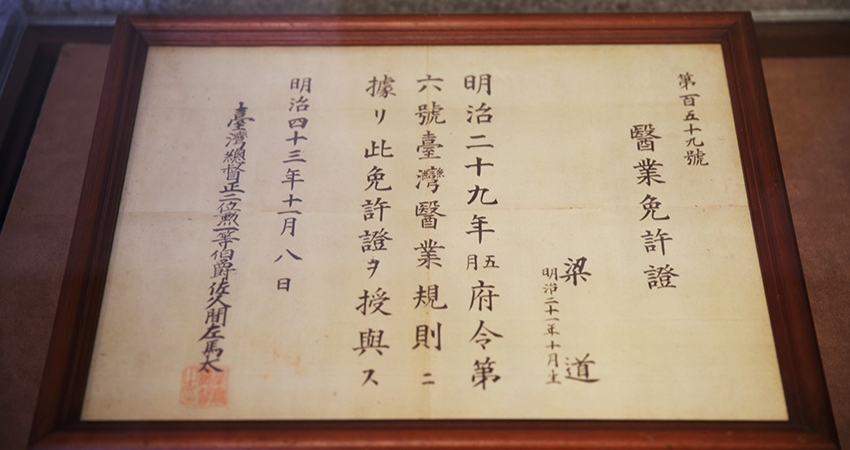 第百五十九號
醫業免許證
梁道
明治二十一年十月生
明治二十九年五月府令第
六號臺灣醫業規則ニ
據リ此免許證ヲ授與ス
明治四十三年十一月八日
臺灣總督正二位勲一等伯爵佐久間左馬太